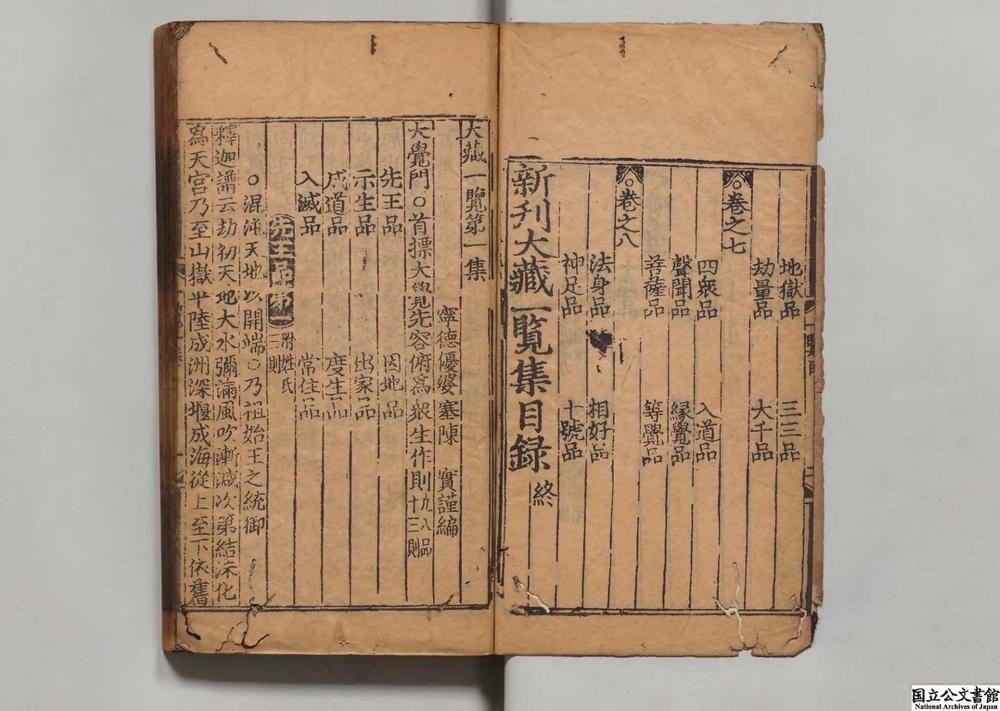 地獄品 三三品
劫量品 大千品
○卷之七
四衆品 入道品
聲聞品 緣覺品
菩薩品 等覺品
○卷之八
法身品 相好品
神足品 十號品
新刋大藏一覧集目録 終
大藏一覧第一集
寧德優婆塞陳 實謹編
大覺門○首摽大覺先容俯爲衆生作則 八品九十三則
先王品 因地品
示生品 出家品
成道品 度生品
入滅品 常住品
先王品第一 附姓氏三則
○混沌天地以開端○乃祖始王之統御
釋迦譜云劫初天地大水彌滿風吹漸減次第結沫化
爲天宮乃至山嶽平陸成洲深堰成海從上至下依舊
国立公文書館
National Archives of Japan